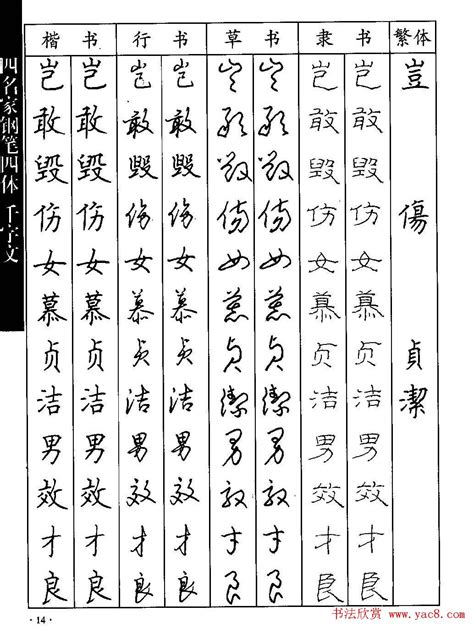 四名家钢笔四体 千字文
楷 书 行 书 草 书 隶 书 繁体
岂 岂 岂 岂 岂 岂 岂 岂 豈
敢 敢 敢 敢 敢 敢 敢 敢
毁 毁 毁 毁 毁 毁 毁 毁
伤 伤 伤 伤 伤 伤 伤 伤 傷
女 女 女 女 女 女 女 女
慕 慕 慕 慕 慕 慕 慕 慕
贞 贞 贞 贞 贞 贞 贞 贞 貞
洁 洁 洁 洁 潔 潔 洁 洁 潔
男 男 男 男 男 男 男 男
效 效 效 效 效 效 效 效
才 才 才 才 才 才 才 才
良 良 良 良 良 良 良 良
·14·
书法欣赏 www.yac8.com